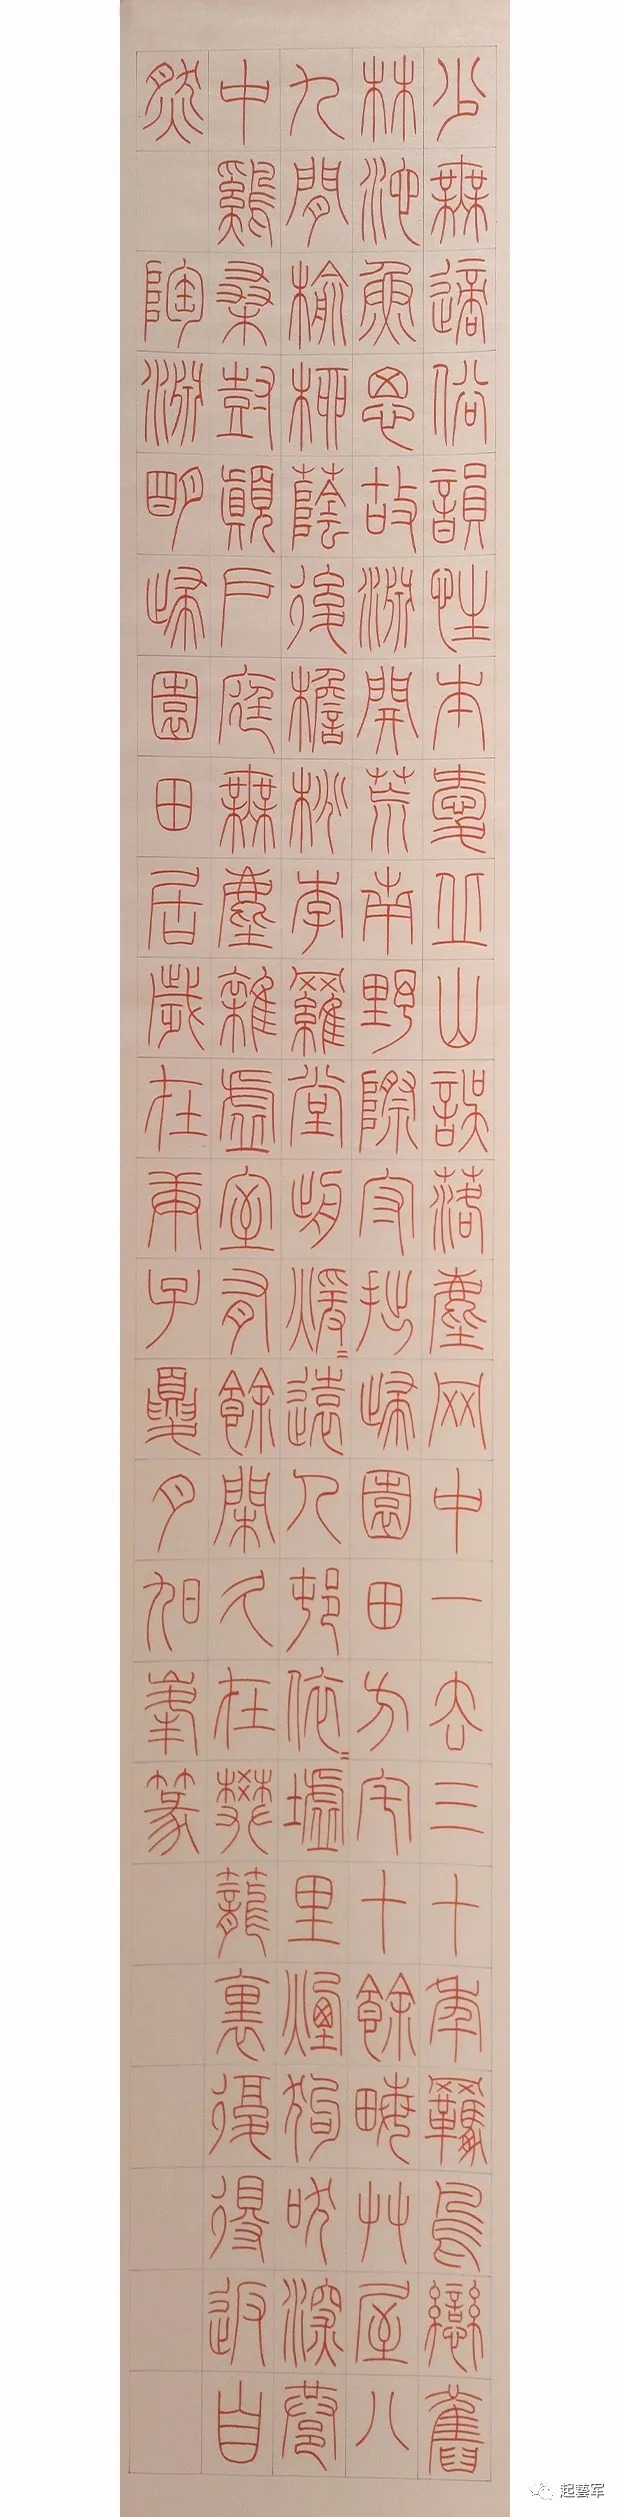 少無適俗韻性本愛丘山誤落塵网中一去三十年羈鳥戀舊
林池魚思故淵開荒南野際守拙歸園田方宅十餘畮艸屋八
九間榆柳蔭後檐桃李羅堂前煖=遠人邨依=墟里煙狗吠深巷
中鷄桑尌顛戶庭無塵雜虛室有餘閑久在樊籠裏復得返自
然 陶淵明歸園田居歲在庚子夏月旭峯篆
起藝军